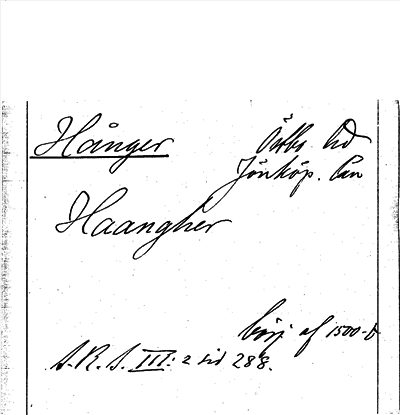 Hånger
Östbo hd
Jönköp. län
Haangher
börj af 1500-t
S.R.S. III: 2 sid 288.